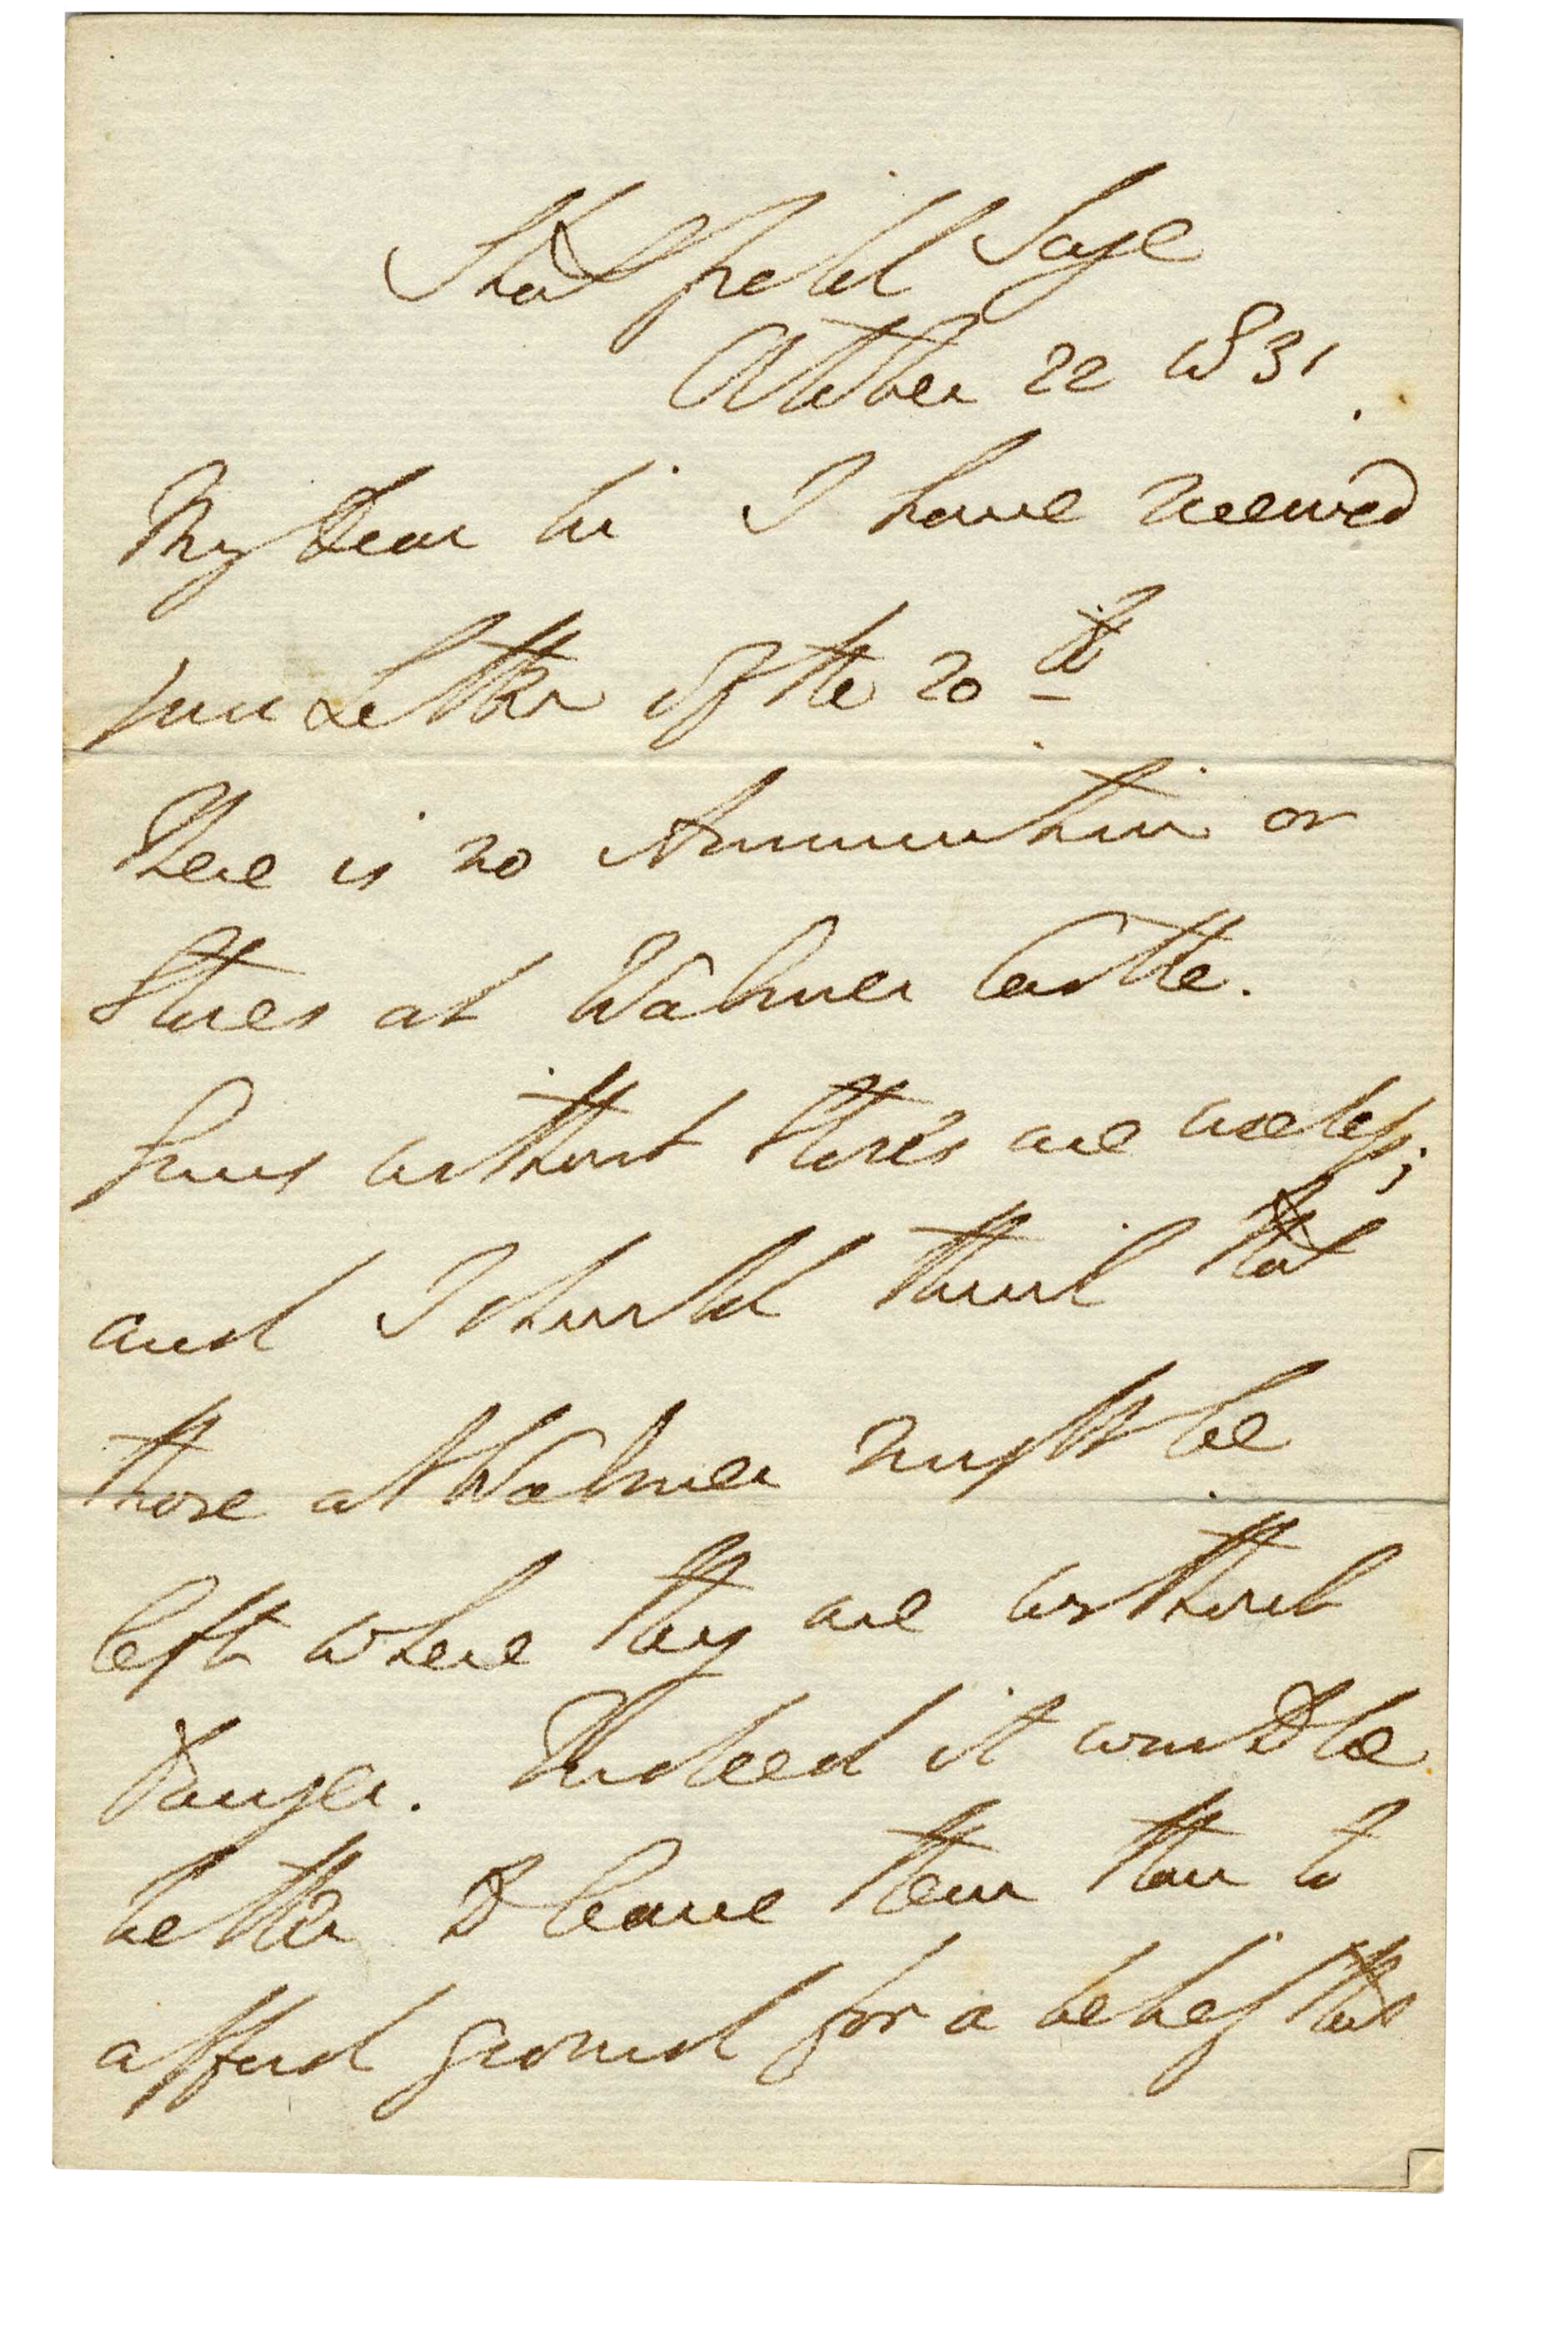 Strathfield Saye
October 22 1831.
My Dear Sir I have received
your Letter of the 20th
There is no Ammunition or
Stores at Walmer Castle.
Guns without Stores are useless;
and I should think that
those at Walmer might be
left where they are without
Danger. Indeed it would be
better to leave them than to
afford ground for a belief that